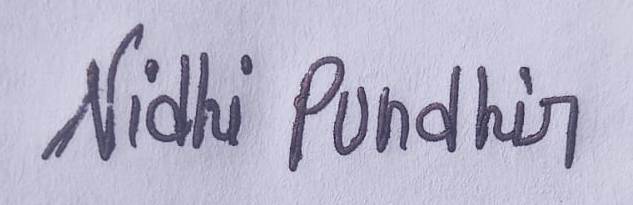 Nidhi Pundhir